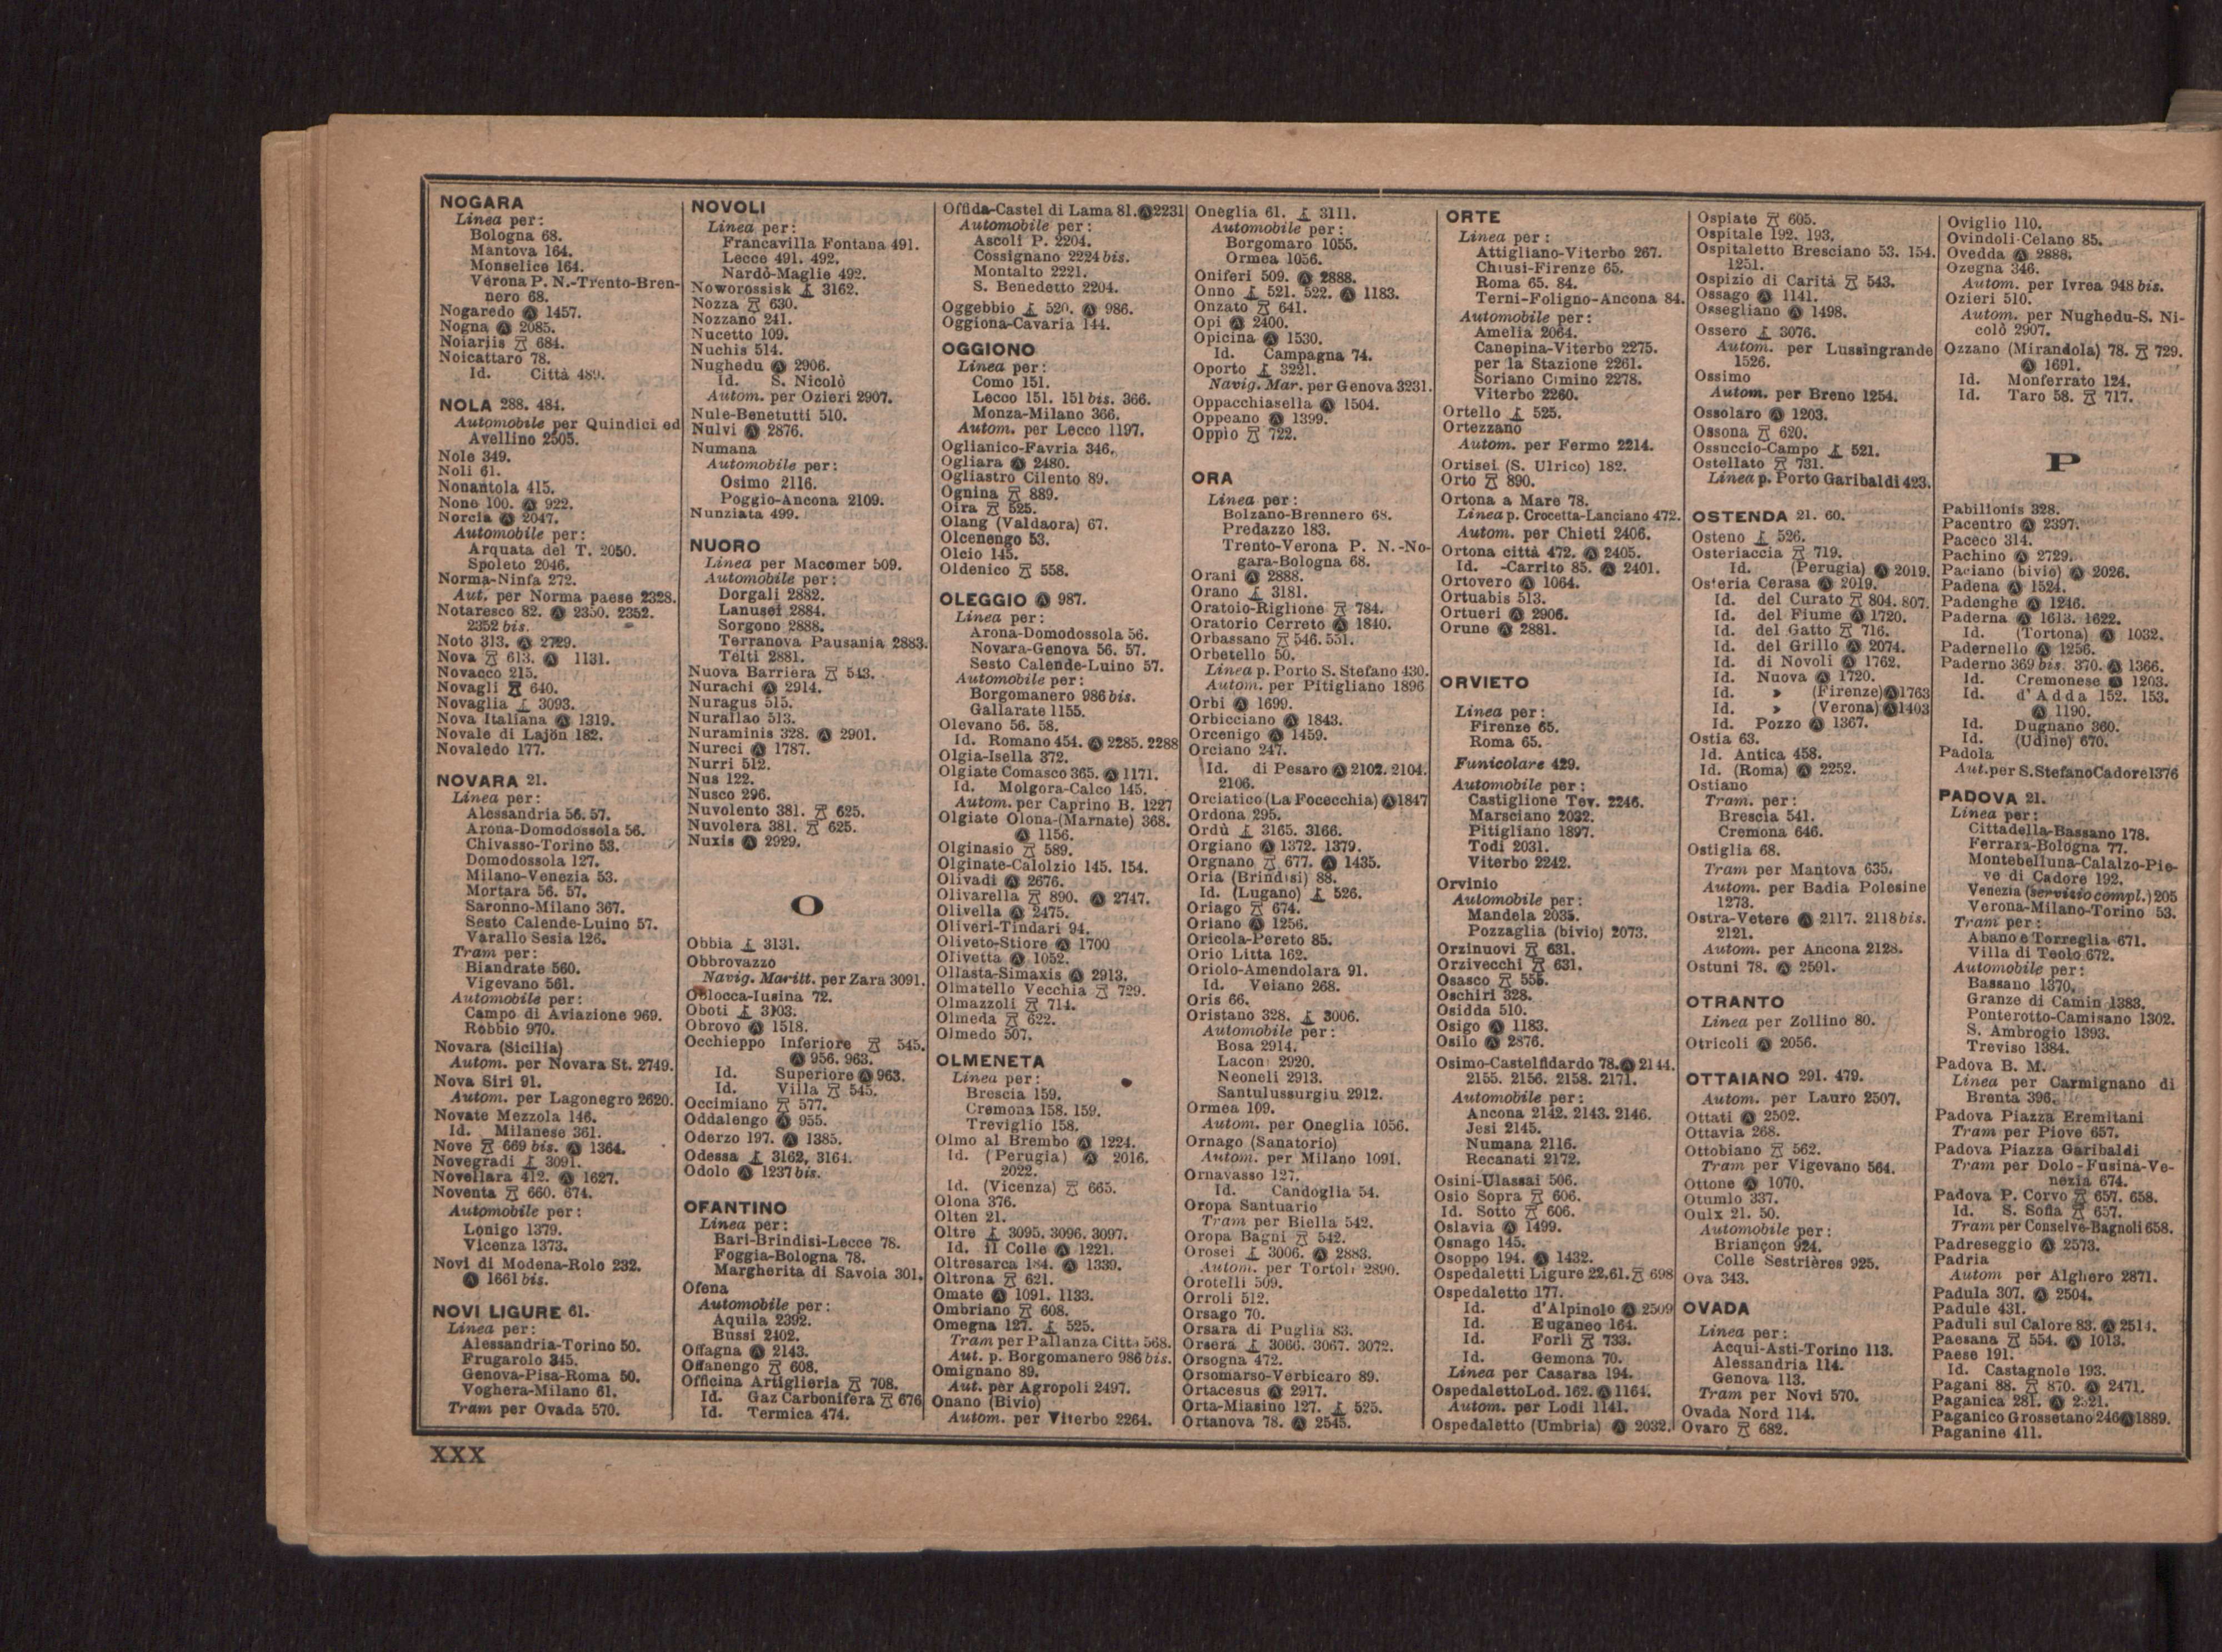 NOGARA
Linea per:
Bologna 68.
Mantova 164.
Monselice 164.
Verona P. N.-Trento-Bren-
nero 68.
Nogaredo Ⓐ 1457.
Nogna Ⓐ 2085.
Noiariis 684.
Noicattaro 78.
Id. Città 489.
NOLA 288. 484.
Automobile per Quindici ed
Avellino 2505.
Nole 349.
Noli 61.
Nonantola 415.
None 100. Ⓐ 922.
Norcia Ⓐ 2047.
Automobile per:
Arquata del T. 2050.
Spoleto 2046.
Norma-Ninfa 272.
Aut. per Norma paese 2328.
Notaresco 82. Ⓐ 2350. 2352.
2352 bis.
Noto 313. Ⓐ 2729.
Nova 613. Ⓐ 1131.
Novacco 215.
Novagli 640.
Novaglia 3093.
Nova Italiana Ⓐ 1319.
Novale di Lajön 182.
Novaledo 177.
NOVARA 21.
Linea per:
Alessandria 56. 57.
Arona-Domodossola 56.
Chivasso-Torino 53.
Domodossola 127.
Milano-Venezia 53.
Mortara 56. 57.
Saronno-Milano 367.
Sesto Calende-Luino 57.
Varallo Sesia 126.
Tram per:
Biandrate 560.
Vigevano 561.
Automobile per:
Campo di Aviazione 969.
Robbio 970.
Novara (Sicilia)
Autom. per Novara St. 2749.
Nova Siri 91.
Autom. per Lagonegro 2620.
Novate Mezzola 146.
Id. Milanese 361.
Nove 669 bis. Ⓐ 1364.
Novegradi 3091.
Novellara 412. Ⓐ 1627.
Noventa 660. 674.
Automobile per:
Lonigo 1379.
Vicenza 1373.
Novi di Modena-Rolo 232.
Ⓐ 1661 bis.
NOVI LIGURE 61.
Linea per:
Alessandria-Torino 50.
Frugarolo 345.
Genova-Pisa-Roma 50.
Voghera-Milano 61.
Tram per Ovada 570.
NOVOLI
Linea per:
Francavilla Fontana 491.
Lecce 491. 492.
Nardò-Maglie 492.
Noworossisk 3162.
Nozza 630.
Nozzano 241.
Nucetto 109.
Nuchis 514.
Nughedu Ⓐ 2906.
Id. S. Nicolò
Autom. per Ozieri 2907.
Nule-Benetutti 510.
Nulvi Ⓐ 2876.
Numana
Automobile per:
Osimo 2116.
Poggio-Ancona 2109.
Nunziata 499.
NUORO
Linea per Macomer 509.
Automobile per:
Dorgali 2882.
Lanusei 2884.
Sorgono 2888.
Terranova Pausania 2883.
Telti 2881.
Nuova Barriera 543.
Nurachi Ⓐ 2914.
Nuragus 515.
Nurallao 513.
Nuraminis 328. Ⓐ 2901.
Nureci Ⓐ 1787.
Nurri 512.
Nus 122.
Nusco 296.
Nuvolento 381. 625.
Nuvolera 381. 625.
Nuxis Ⓐ 2929.
O
Obbia 3131.
Obbrovazzo
Navig. Maritt. per Zara 3091.
Oblocca-Iusina 72.
Oboti 3103.
Obrovo Ⓐ 1518.
Occhieppo Inferiore 545.
Ⓐ 956. 963.
Id. Superiore Ⓐ 963.
Id. Villa 545.
Occimiano 577.
Oddalengo Ⓐ 955.
Oderzo 197. Ⓐ 1385.
Odessa 3162, 3164.
Odolo Ⓐ 1237 bis.
OFANTINO
Linea per:
Bari-Brindisi-Lecce 78.
Foggia-Bologna 78.
Margherita di Savoia 301.
Ofena
Automobile per:
Aquila 2392.
Bussi 2402.
Offagna Ⓐ 2143.
Offanengo 608.
Officina Artiglieria 708.
Id. Gaz Carbonifera 676
Id. Termica 474.
Offida-Castel di Lama 81. Ⓐ 2231
Automobile per:
Ascoli P. 2204.
Cossignano 2224 bis.
Montalto 2221.
S. Benedetto 2204.
Oggebbio 520. Ⓐ 986.
Oggiona-Cavaria 144.
OGGIONO
Linea per:
Como 151.
Lecco 151. 151 bis. 366.
Monza-Milano 366.
Autom. per Lecco 1197.
Oglianico-Favria 346.
Ogliara Ⓐ 2480.
Ogliastro Cilento 89.
Ognina 889.
Oira 525.
Olang (Valdaora) 67.
Olcenengo 53.
Olcio 145.
Oldenico 558.
OLEGGIO Ⓐ 987.
Linea per:
Arona-Domodossola 56.
Novara-Genova 56. 57.
Sesto Calende-Luino 57.
Automobile per:
Borgomanero 986 bis.
Gallarate 1155.
Olevano 56. 58.
Id. Romano 454. Ⓐ 2285. 2288
Olgia-Isella 372.
Olgiate Comasco 365. Ⓐ 1171.
Id. Molgora-Calco 145.
Autom. per Caprino B. 1227
Olgiate Olona-(Marnate) 368.
Ⓐ 1156.
Olginasio 589.
Olginate-Calolzio 145. 154.
Olivadi Ⓐ 2676.
Olivarella 890. Ⓐ 2747.
Olivella Ⓐ 2475.
Oliveri-Tindari 94.
Oliveto-Stiore Ⓐ 1700
Olivetta Ⓐ 1052.
Ollasta-Simaxis Ⓐ 2913.
Olmatello Vecchia 729.
Olmazzoli 714.
Olmeda 622.
Olmedo 507.
OLMENETA
Linea per:
Brescia 159.
Cremona 158. 159.
Treviglio 158.
Olmo al Brembo Ⓐ 1224.
Id. (Perugia) Ⓐ 2016.
2022.
Id. (Vicenza) 665.
Olona 376.
Olten 21.
Oltre 3095. 3096. 3097.
Id. il Colle Ⓐ 1221.
Oltresarca 184. Ⓐ 1339.
Oltrona 621.
Omate Ⓐ 1091. 1133.
Ombriano 608.
Omegna 127. 525.
Tram per Pallanza Città 568.
Aut. p. Borgomanero 986 bis.
Omignano 89.
Aut. per Agropoli 2497.
Onano (Bivio)
Autom. per Viterbo 2264.
Oneglia 61. 3111.
Automobile per:
Borgomaro 1055.
Ormea 1056.
Oniferi 509. Ⓐ 2888.
Onno 521. 522. Ⓐ 1183.
Onzato 641.
Opi Ⓐ 2400.
Opicina Ⓐ 1530.
Id. Campagna 74.
Oporto 3221.
Navig. Mar. per Genova 3231.
Oppacchiasella Ⓐ 1504.
Oppeano Ⓐ 1399.
Oppio 722.
ORA
Linea per:
Bolzano-Brennero 68.
Predazzo 183.
Trento-Verona P. N.-No-
gara-Bologna 68.
Orani Ⓐ 2888.
Orano 3181.
Oratoio-Riglione 784.
Oratorio Cerreto Ⓐ 1840.
Orbassano 546. 551.
Orbetello 50.
Linea p. Porto S. Stefano 430.
Autom. per Pitigliano 1896
Orbi Ⓐ 1699.
Orbicciano Ⓐ 1843.
Orcenigo Ⓐ 1459.
Orciano 247.
Id. di Pesaro Ⓐ 2102. 2104.
2106.
Orciatico (La Focecchia) Ⓐ 1847
Ordona 295.
Ordù 3165. 3166.
Orgiano Ⓐ 1372. 1379.
Orgnano 677. Ⓐ 1435.
Oria (Brindisi) 88.
Id. (Lugano) 526.
Oriago 674.
Oriano Ⓐ 1256.
Oricola-Pereto 85.
Orio Litta 162.
Oriolo-Amendolara 91.
Id. Veiano 268.
Oris 66.
Oristano 328. 3006.
Automobile per:
Bosa 2914.
Laconi 2920.
Neoneli 2913.
Santulussurgiu 2912.
Ormea 109.
Autom. per Oneglia 1056.
Ornago (Sanatorio)
Autom. per Milano 1091.
Ornavasso 127.
Id. Candoglia 54.
Oropa Santuario
Tram per Biella 542.
Oropa Bagni 542.
Orosei 3006. Ⓐ 2883.
Autom. per Tortolì 2890.
Orotelli 509.
Orroli 512.
Orsago 70.
Orsara di Puglia 83.
Orsera 3066. 3067. 3072.
Orsogna 472.
Orsomarso-Verbicaro 89.
Ortacesus Ⓐ 2917.
Orta-Miasino 127. 525.
Ortanova 78. Ⓐ 2545.
ORTE
Linea per:
Attigliano-Viterbo 267.
Chiusi-Firenze 65.
Roma 65. 84.
Terni-Foligno-Ancona 84.
Automobile per:
Amelia 2064.
Canepina-Viterbo 2275.
per la Stazione 2261.
Soriano Cimino 2278.
Viterbo 2260.
Ortello 525.
Ortezzano
Autom. per Fermo 2214.
Ortisei (S. Ulrico) 182.
Orto 890.
Ortona a Mare 78.
Linea p. Crocetta-Lanciano 472.
Autom. per Chieti 2406.
Ortona città 472. Ⓐ 2405.
Id. -Carrito 85. Ⓐ 2401.
Ortovero Ⓐ 1064.
Ortuabis 513.
Ortueri Ⓐ 2906.
Orune Ⓐ 2881.
ORVIETO
Linea per:
Firenze 65.
Roma 65.
Funicolare 429.
Automobile per:
Castiglione Tev. 2246.
Marsciano 2032.
Pitigliano 1897.
Todi 2031.
Viterbo 2242.
Orvinio
Automobile per:
Mandela 2035.
Pozzaglia (bivio) 2073.
Orzinuovi 631.
Orzivecchi 631.
Osasco 555.
Oschiri 328.
Osidda 510.
Osigo Ⓐ 1183.
Osilo Ⓐ 2876.
Osimo-Castelfidardo 78. Ⓐ 2144.
2155. 2156. 2158. 2171.
Automobile per:
Ancona 2142. 2143. 2146.
Jesi 2145.
Numana 2116.
Recanati 2172.
Osini-Ulassai 506.
Osio Sopra 606.
Id. Sotto 606.
Oslavia Ⓐ 1499.
Osnago 145.
Osoppo 194. Ⓐ 1432.
Ospedaletti Ligure 22.61. 698
Ospedaletto 177.
Id. d'Alpinolo Ⓐ 2509
Id. Euganeo 164.
Id. Forlì 733.
Id. Gemona 70.
Linea per Casarsa 194.
Ospedaletto Lod. 162. Ⓐ 1164.
Autom. per Lodi 1141.
Ospedaletto (Umbria) Ⓐ 2032.
Ospiate 605.
Ospitale 192. 193.
Ospitaletto Bresciano 53. 154.
1251.
Ospizio di Carità 543.
Ossago Ⓐ 1141.
Ossegliano Ⓐ 1498.
Ossero 3076.
Autom. per Lussingrande
1526.
Ossimo
Autom. per Breno 1254.
Ossolaro Ⓐ 1203.
Ossona 620.
Ossuccio-Campo 521.
Ostellato 731.
Linea p. Porto Garibaldi 423.
OSTENDA 21. 60.
Osteno 526.
Osteriaccia 719.
Id. (Perugia) Ⓐ 2019.
Osteria Cerasa Ⓐ 2019.
Id. del Curato 804. 807.
Id. del Fiume Ⓐ 1720.
Id. del Gatto 716.
Id. del Grillo Ⓐ 2074.
Id. di Novoli Ⓐ 1762.
Id. Nuova Ⓐ 1720.
Id. » (Firenze) Ⓐ 1763
Id. » (Verona) Ⓐ 1403
Id. Pozzo Ⓐ 1367.
Ostia 63.
Id. Antica 458.
Id. (Roma) Ⓐ 2252.
Ostiano
Tram. per:
Brescia 541.
Cremona 646.
Ostiglia 68.
Tram per Mantova 635.
Autom. per Badia Polesine
1273.
Ostra-Vetere Ⓐ 2117. 2118 bis.
2121.
Autom. per Ancona 2128.
Ostuni 78. Ⓐ 2591.
OTRANTO
Linea per Zollino 80.
Otricoli Ⓐ 2056.
OTTAIANO 291. 479.
Autom. per Lauro 2507.
Ottati Ⓐ 2502.
Ottavia 268.
Ottobiano 562.
Tram per Vigevano 564.
Ottone Ⓐ 1070.
Otumlo 337.
Oulx 21. 50.
Automobile per:
Briançon 924.
Colle Sestrières 925.
Ova 343.
OVADA
Linea per:
Acqui-Asti-Torino 113.
Alessandria 114.
Genova 113.
Tram per Novi 570.
Ovada Nord 114.
Ovaro 682.
Oviglio 110.
Ovindoli-Celano 85.
Ovedda Ⓐ 2888.
Ozegna 346.
Autom. per Ivrea 948 bis.
Ozieri 510.
Autom. per Nughedu-S. Ni-
colò 2907.
Ozzano (Mirandola) 78. 729.
Ⓐ 1691.
Id. Monferrato 124.
Id. Taro 58. 717.
P
Pabillonis 328.
Pacentro Ⓐ 2397.
Paceco 314.
Pachino Ⓐ 2729.
Paciano (bivio) Ⓐ 2026.
Padena Ⓐ 1524.
Padenghe Ⓐ 1246.
Paderna Ⓐ 1613. 1622.
Id. (Tortona) Ⓐ 1032.
Padernello Ⓐ 1256.
Paderno 369 bis. 370. Ⓐ 1366.
Id. Cremonese Ⓐ 1203.
Id. d'Adda 152. 153.
Ⓐ 1190.
Id. Dugnano 360.
Id. (Udine) 670.
Padola
Aut. per S. Stefano Cadore 1376
PADOVA 21.
Linea per:
Cittadella-Bassano 178.
Ferrara-Bologna 77.
Montebelluna-Calalzo-Pie-
ve di Cadore 192.
Venezia (servitio compl.) 205
Verona-Milano-Torino 53.
Tram per:
Abano e Torreglia 671.
Villa di Teolo 672.
Automobile per:
Bassano 1370.
Granze di Camin 1383.
Ponterotto-Camisano 1302.
S. Ambrogio 1393.
Treviso 1384.
Padova B. M.
Linea per Carmignano di
Brenta 396.
Padova Piazza Eremitani
Tram per Piove 657.
Padova Piazza Garibaldi
Tram per Dolo-Fusina-Ve-
nezia 674.
Padova P. Corvo 657. 658.
Id. S. Sofia 657.
Tram per Conselve-Bagnoli 658.
Padreseggio Ⓐ 2573.
Padria
Autom per Alghero 2871.
Padula 307. Ⓐ 2504.
Padule 431.
Paduli sul Calore 83. Ⓐ 2514.
Paesana 554. Ⓐ 1013.
Paese 191.
Id. Castagnole 193.
Pagani 88. 870. Ⓐ 2471.
Paganica 281. Ⓐ 2321.
Paganico Grossetano 246 Ⓐ 1889.
Paganine 411.
XXX